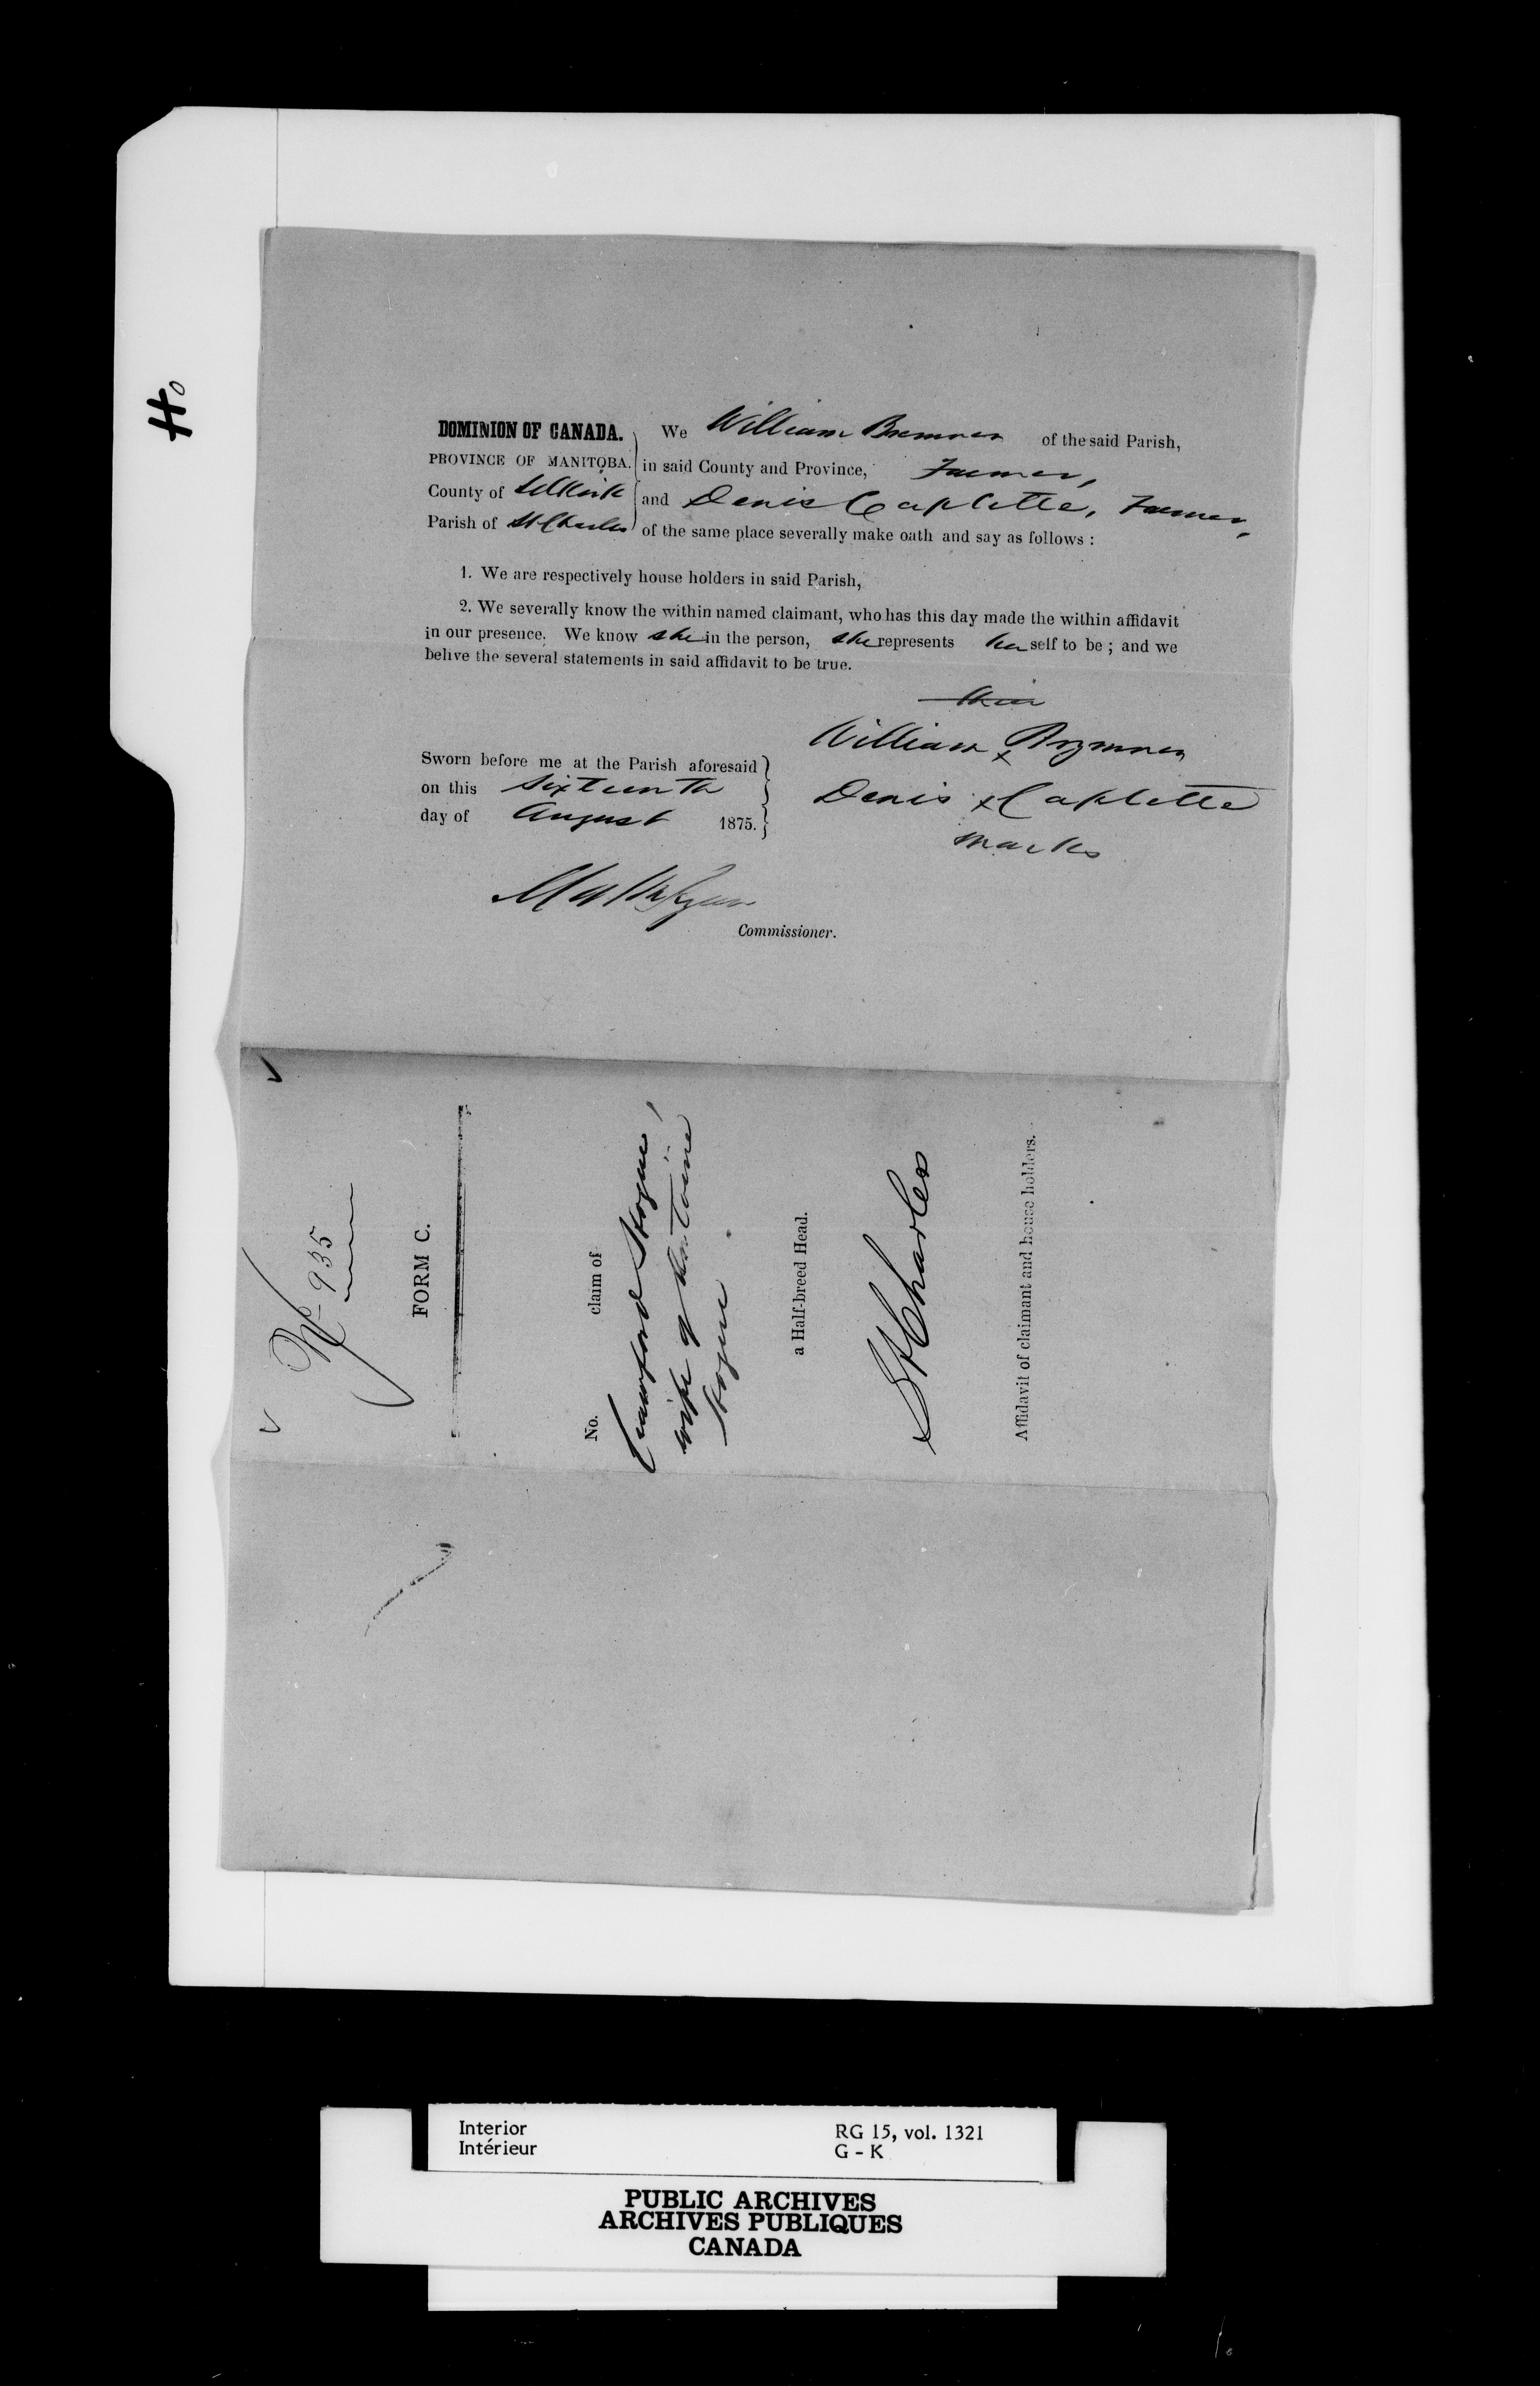 Ho
DOMINION OF CANADA.
PROVINCE OF MANITOBA.
County of Selkirk
Parish of St Charles
We William Bremner of the said Parish,
in said County and Province, Farmer,
and Denis Caplette, Farmer,
of the same place severally make oath and say as follows :
1. We are respectively house holders in said Parish,
2. We severally know the within named claimant, who has this day made the within affidavit
in our presence. We know she in the person, she represents her self to be ; and we
belive the several statements in said affidavit to be true.
their
William x Bremner
Denis x Caplette
marks
Sworn before me at the Parish aforesaid
on this Sixteenth
day of August 1875.
Commissioner.
No 935
FORM C.
No. claim of
Hogue,
wife of Antoine
Hogue
a Half-breed Head.
St Charles
Affidavit of claimant and house holders.
Interior
Intérieur
RG 15, vol. 1321
G - K
PUBLIC ARCHIVES
ARCHIVES PUBLIQUES
CANADA